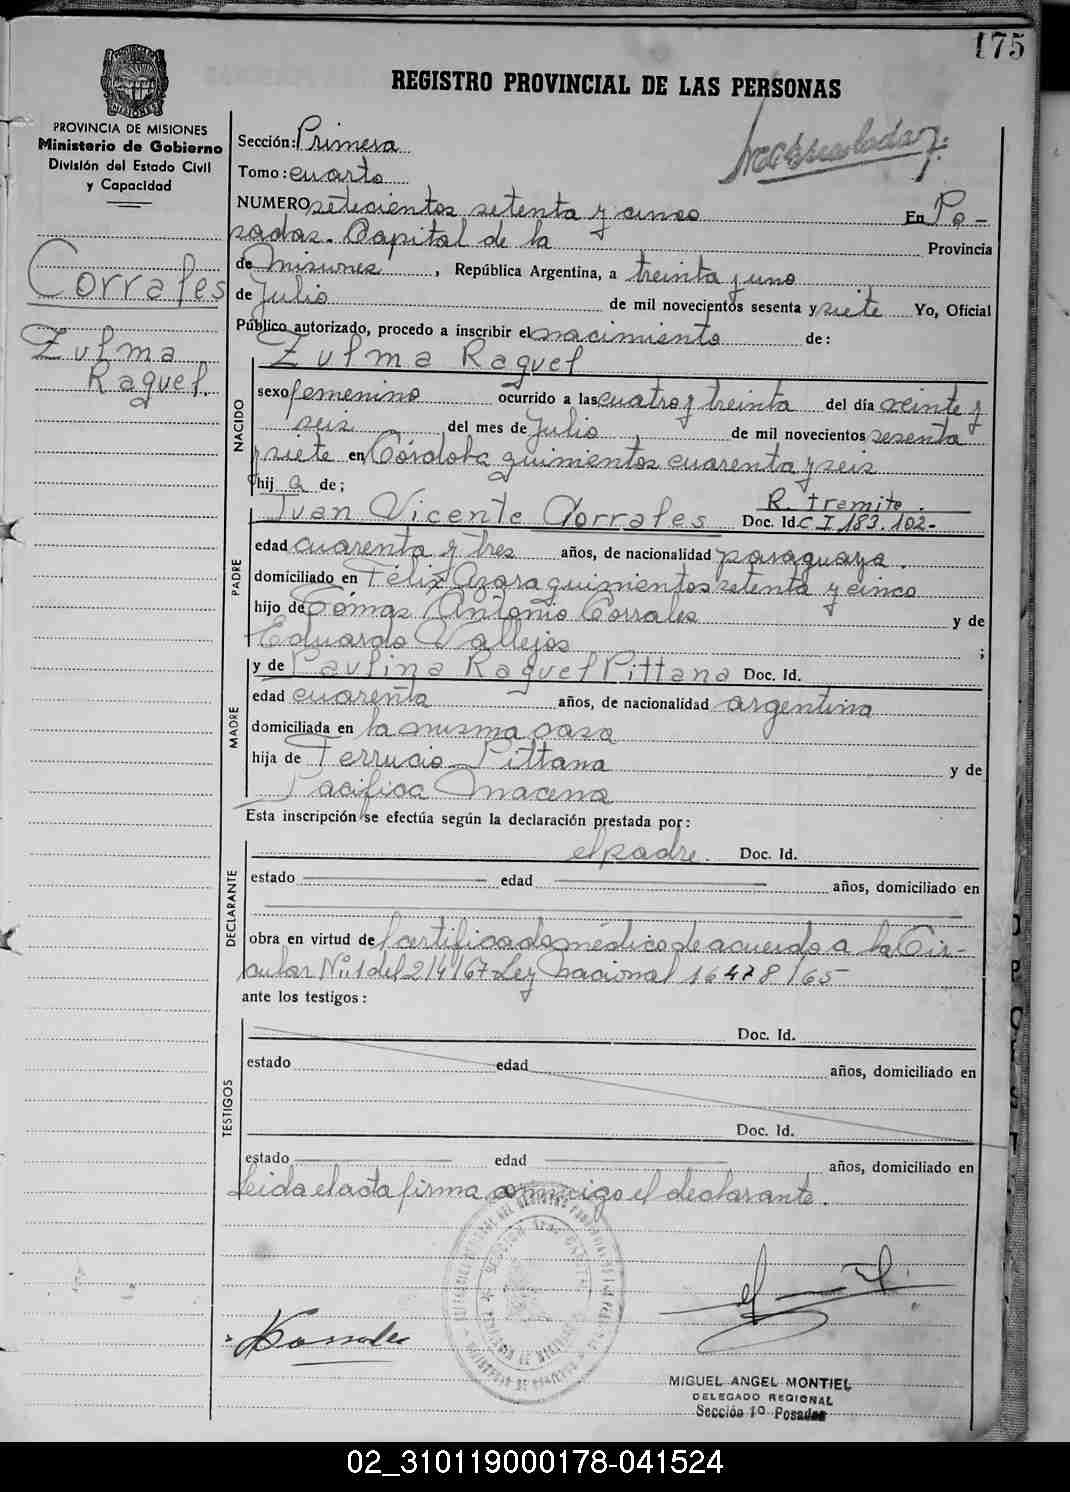 175
REGISTRO PROVINCIAL DE LAS PERSONAS
PROVINCIA DE MISIONES
Ministerio de Gobierno
División del Estado Civil
y Capacidad
Corrales
Zulma
Raquel.
Sección: Primera
Tomo: cuarto
NUMERO setecientos setenta y cinco En Po-
sadas. Capital de la Provincia
de Misiones, República Argentina, a treinta y uno
de Julio de mil novecientos sesenta y siete Yo, Oficial
Público autorizado, procedo a inscribir el nacimiento de:
Zulma Raquel
NACIDO
sexo femenino ocurrido a las cuatro y treinta del día veinte y
seis del mes de Julio de mil novecientos sesenta
y siete en Córdoba quinientos cuarenta y seis
hij a de;
R. tremite.
Juan Vicente Corrales Doc. Id. C I 183.102-
PADRE
edad cuarenta y tres años, de nacionalidad paraguaya.
domiciliado en Félix Azara quinientos setenta y cinco
hijo de Tómas Antonio Corrales y de
Eduarda Vallejos ;
y de Paulina Raquel Pittana Doc. Id.
MADRE
edad cuarenta años, de nacionalidad argentina
domiciliada en la misma casa
hija de Ferrucio Pittana y de
Pacifica Macena
Esta inscripción se efectúa según la declaración prestada por:
el padre. Doc. Id.
DECLARANTE
estado edad años, domiciliado en
obra en virtud del certificado médico de acuerdo a la Cir-
cular Nº 1 del 2/4/67 Ley Nacional 16478/65
ante los testigos:
TESTIGOS
Doc. Id.
estado edad años, domiciliado en
Doc. Id.
estado edad años, domiciliado en
Leida el acta firma conmigo el declarante.
MIGUEL ANGEL MONTIEL
DELEGADO REGIONAL
Sección 1º Posadas
02_310119000178-041524